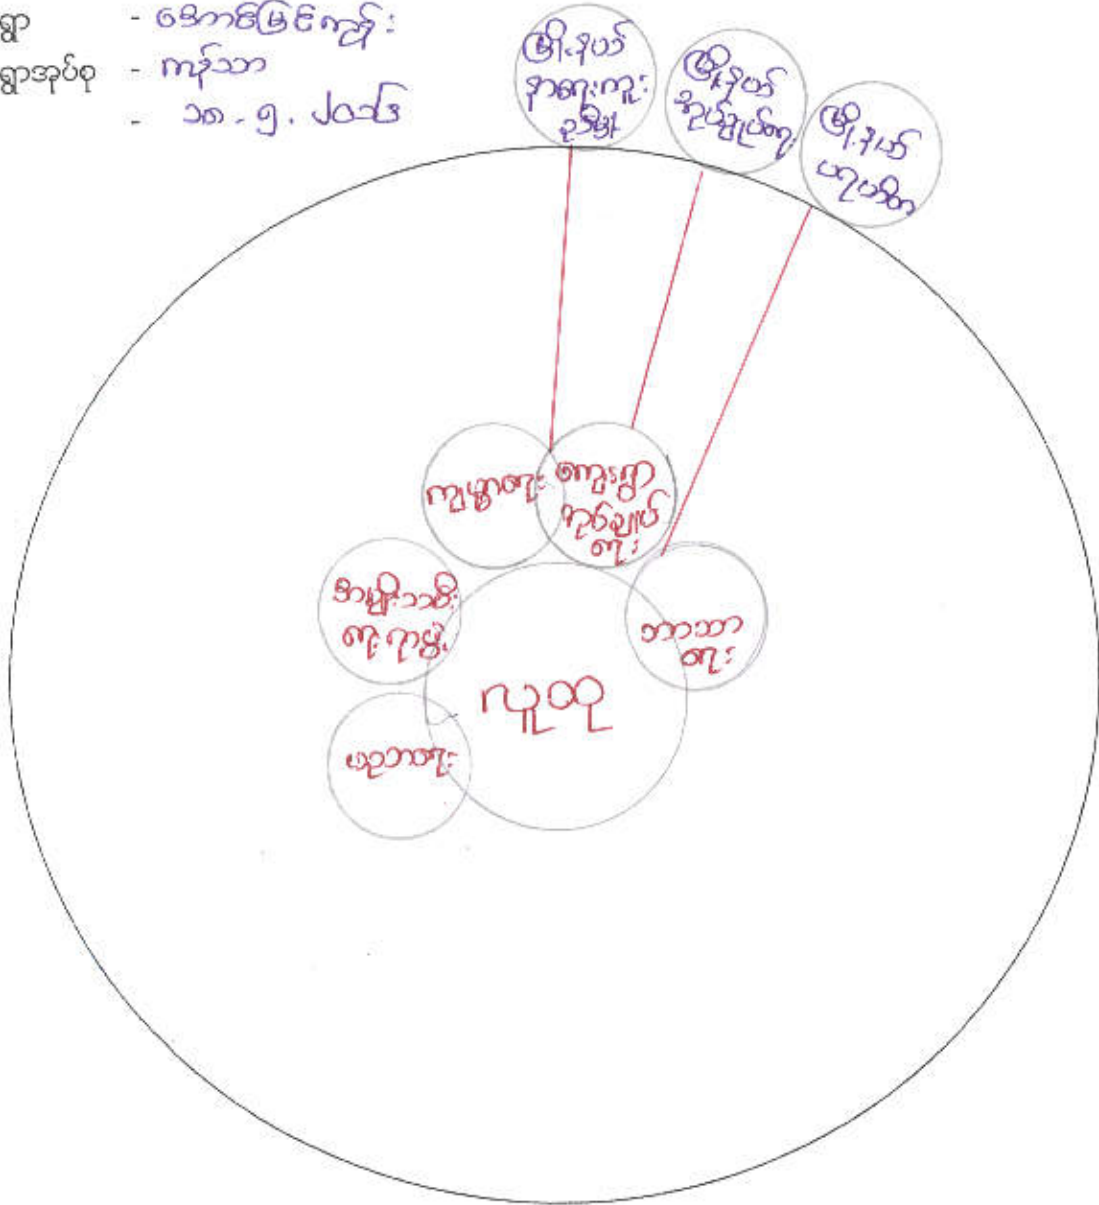 ရွာ - အောင်မြင်ကျွန်း
ရွာအုပ်စု - ကန်သာ
- ၁၈.၅.၂၀၁၆
မြို့နယ်
နာရေးကူ
ညီမှု
မြို့နယ်
အုပ်ချုပ်ရေး
မြို့နယ်
ပရဟိတ
ကျန်းမာရေး
ကျေးရွာ
အုပ်ချုပ်
ရေး
အမျိုးသမီး
ရေးရာ
ဘာသာ
ရေး
လူထု
ပညာရေး